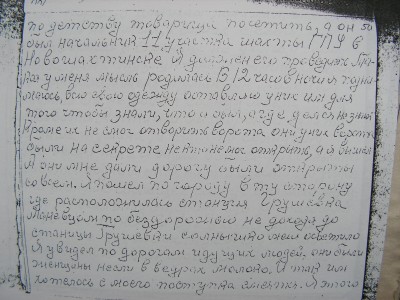 по детству товарища посетить, а он 50
был начальник 11 участка шахты ГПУ в
Новошахтинске Я должен его проведать
у меня мысль родилась В 12 часов ночи я подни
маюсь, всю свою одежду оставляю у них им для
того чтобы знали, что я был, а где делся не знали
Кроме их не смог отворить ворота они у них
были на секрете никто не мог открыть, а я вышел
и они мне дали дорогу были открыты
совсем. Я пошел по городу в ту сторону
где расположилась станция Грушевка
по бездорожью не доходя до
станицы Грушевки солнышко мне светило
Я увидел по дорогам идущих людей, они были
женщины несли в ведрах молоко, И так им
хотелось с моего поступка Я этого